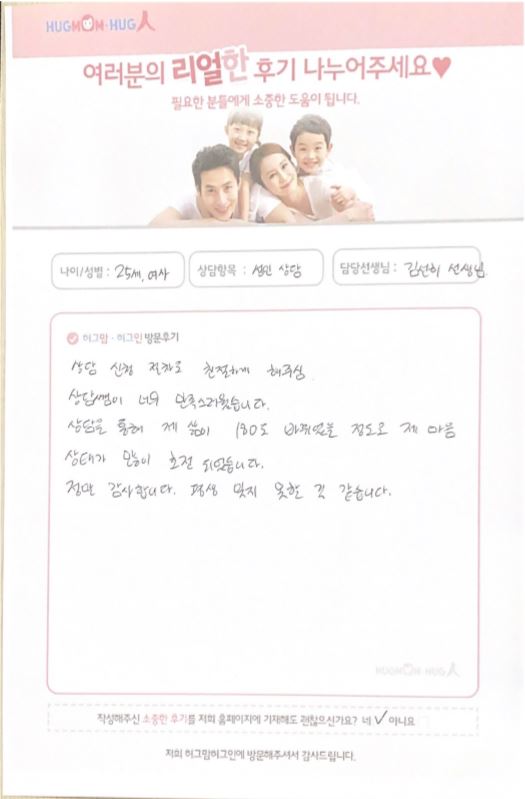 HUGMOM·HUG人
여러분의 리얼한 후기 나누어주세요♥
필요한 분들에게 소중한 도움이 됩니다.
나이/성별 : 25세, 여자 상담항목 : 성인 상담 담당선생님 : 김선희 선생님
허그맘·허그인 방문후기
상담 신청 절차도 친절하게 해주심.
상담쌤이 너무 만족스러웠습니다.
상담을 통해 제 삶이 180도 바뀌었을 정도로 제 마음
상태가 많이 호전 되었습니다.
정말 감사합니다. 평생 잊지 못할 것 같습니다.
HUGMOM·HUG人
작성해주신 소중한 후기를 저희 홈페이지에 기재해도 괜찮으신가요? 네 ✓ 아니요
저희 허그맘허그인에 방문해주셔서 감사드립니다.